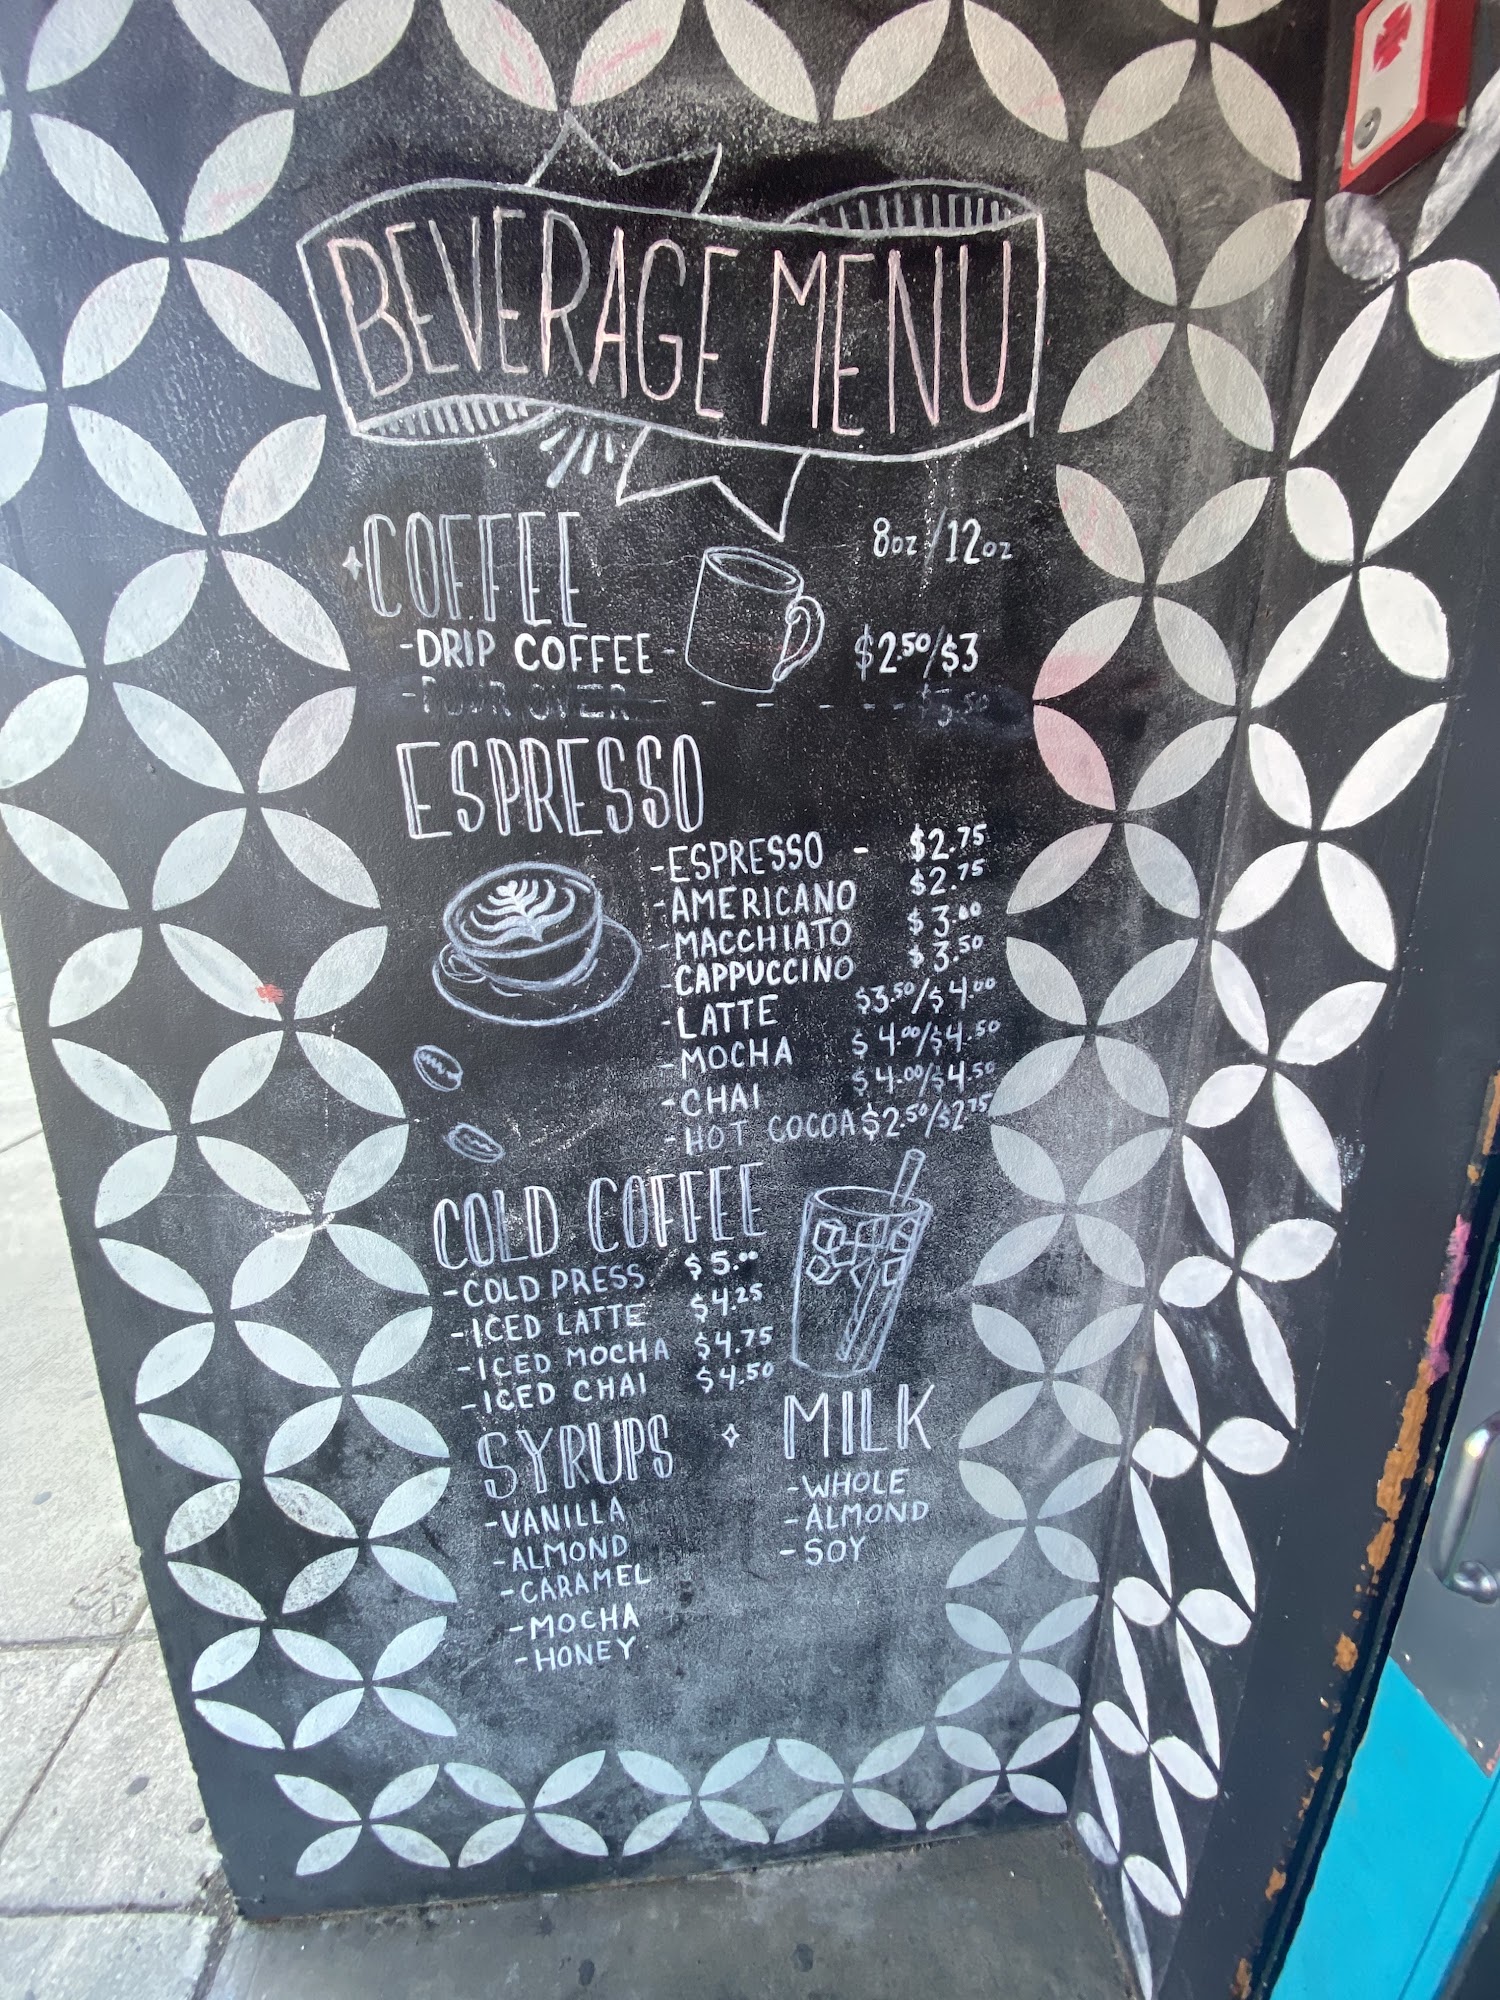 BEVERAGE MENU
COFFEE 8oz/12oz
-DRIP COFFEE- $2.50/$3
-POUR OVER - - - - - $3.50
ESPRESSO
-ESPRESSO - $2.75
-AMERICANO $2.75
-MACCHIATO $3.00
-CAPPUCCINO $3.50
-LATTE $3.50/$4.00
-MOCHA $4.00/$4.50
-CHAI $4.00/$4.50
-HOT COCOA $2.50/$2.75
COLD COFFEE
-COLD PRESS $5.00
-ICED LATTE $4.25
-ICED MOCHA $4.75
-ICED CHAI $4.50
SYRUPS
-VANILLA
-ALMOND
-CARAMEL
-MOCHA
-HONEY
MILK
-WHOLE
-ALMOND
-SOY